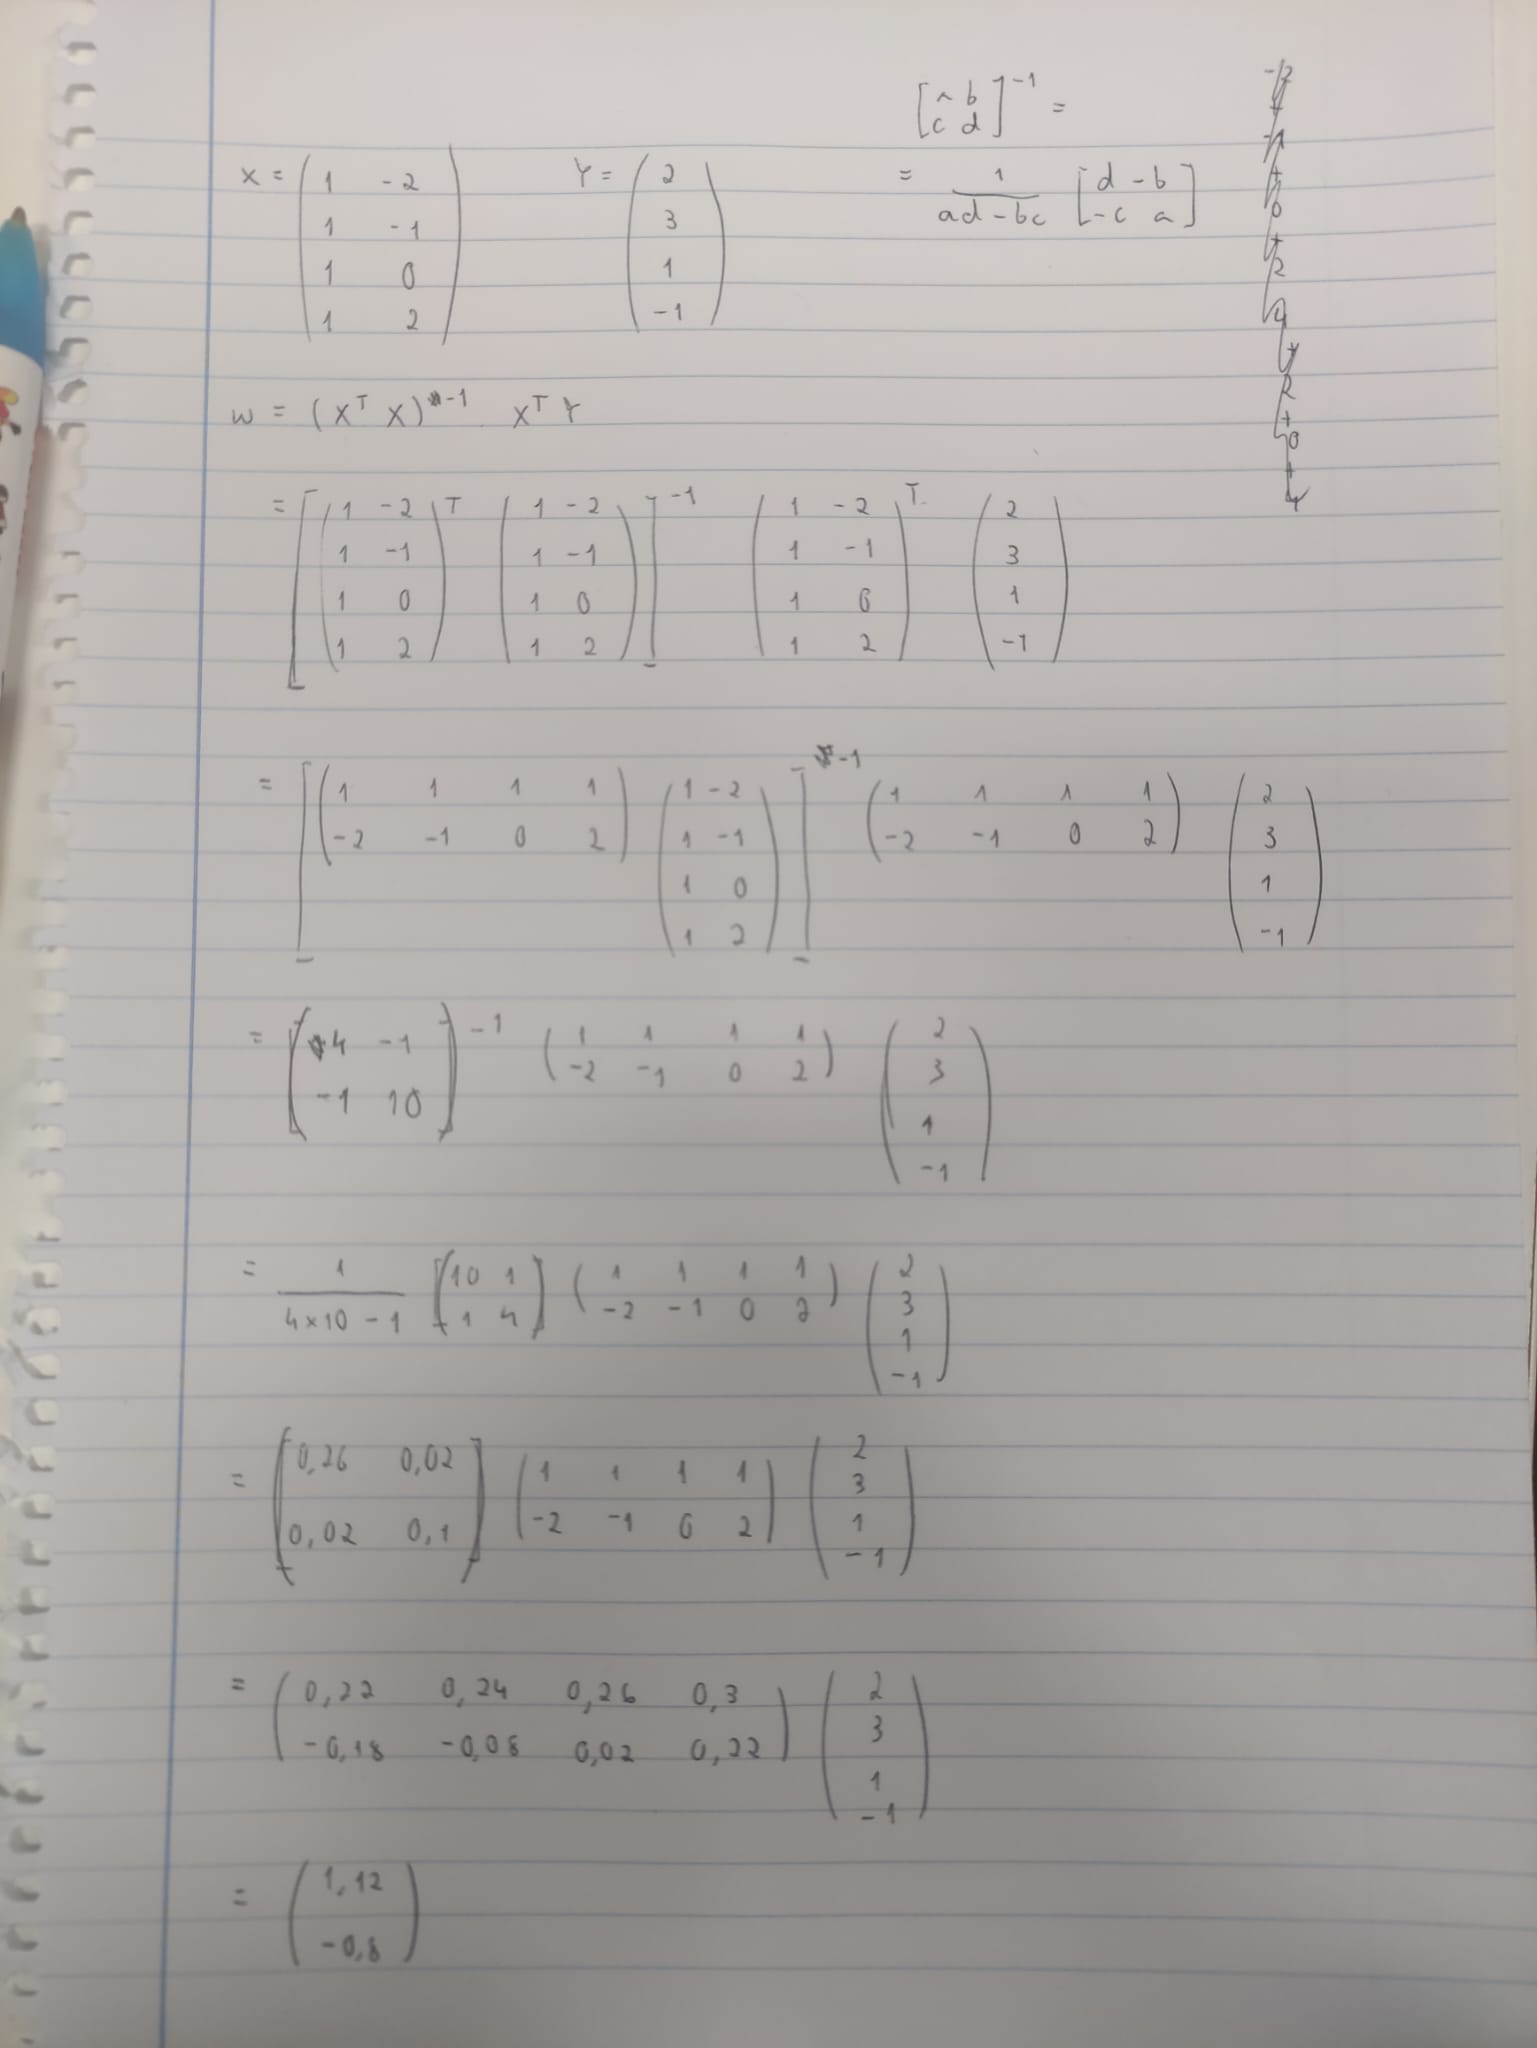 [a b
c d]⁻¹ =
= 1/(ad - bc) [d -b
-c a]
X = (1 -2
1 -1
1 0
1 2)
Y = (2
3
1
-1)
w = (Xᵀ X)⁻¹ Xᵀ Y
= [(1 -2
1 -1
1 0
1 2)ᵀ (1 -2
1 -1
1 0
1 2)]⁻¹ (1 -2
1 -1
1 0
1 2)ᵀ (2
3
1
-1)
= [(1 1 1 1
-2 -1 0 2) (1 -2
1 -1
1 0
1 2)]⁻¹ (1 1 1 1
-2 -1 0 2) (2
3
1
-1)
= (4 -1
-1 10)⁻¹ (1 1 1 1
-2 -1 0 2) (2
3
1
-1)
= 1/(4×10 - 1) [10 1
1 4] (1 1 1 1
-2 -1 0 2) (2
3
1
-1)
= [0,26 0,02
0,02 0,1] (1 1 1 1
-2 -1 0 2) (2
3
1
-1)
= (0,22 0,24 0,26 0,3
-0,18 -0,08 0,02 0,22) (2
3
1
-1)
= (1,12
-0,8)